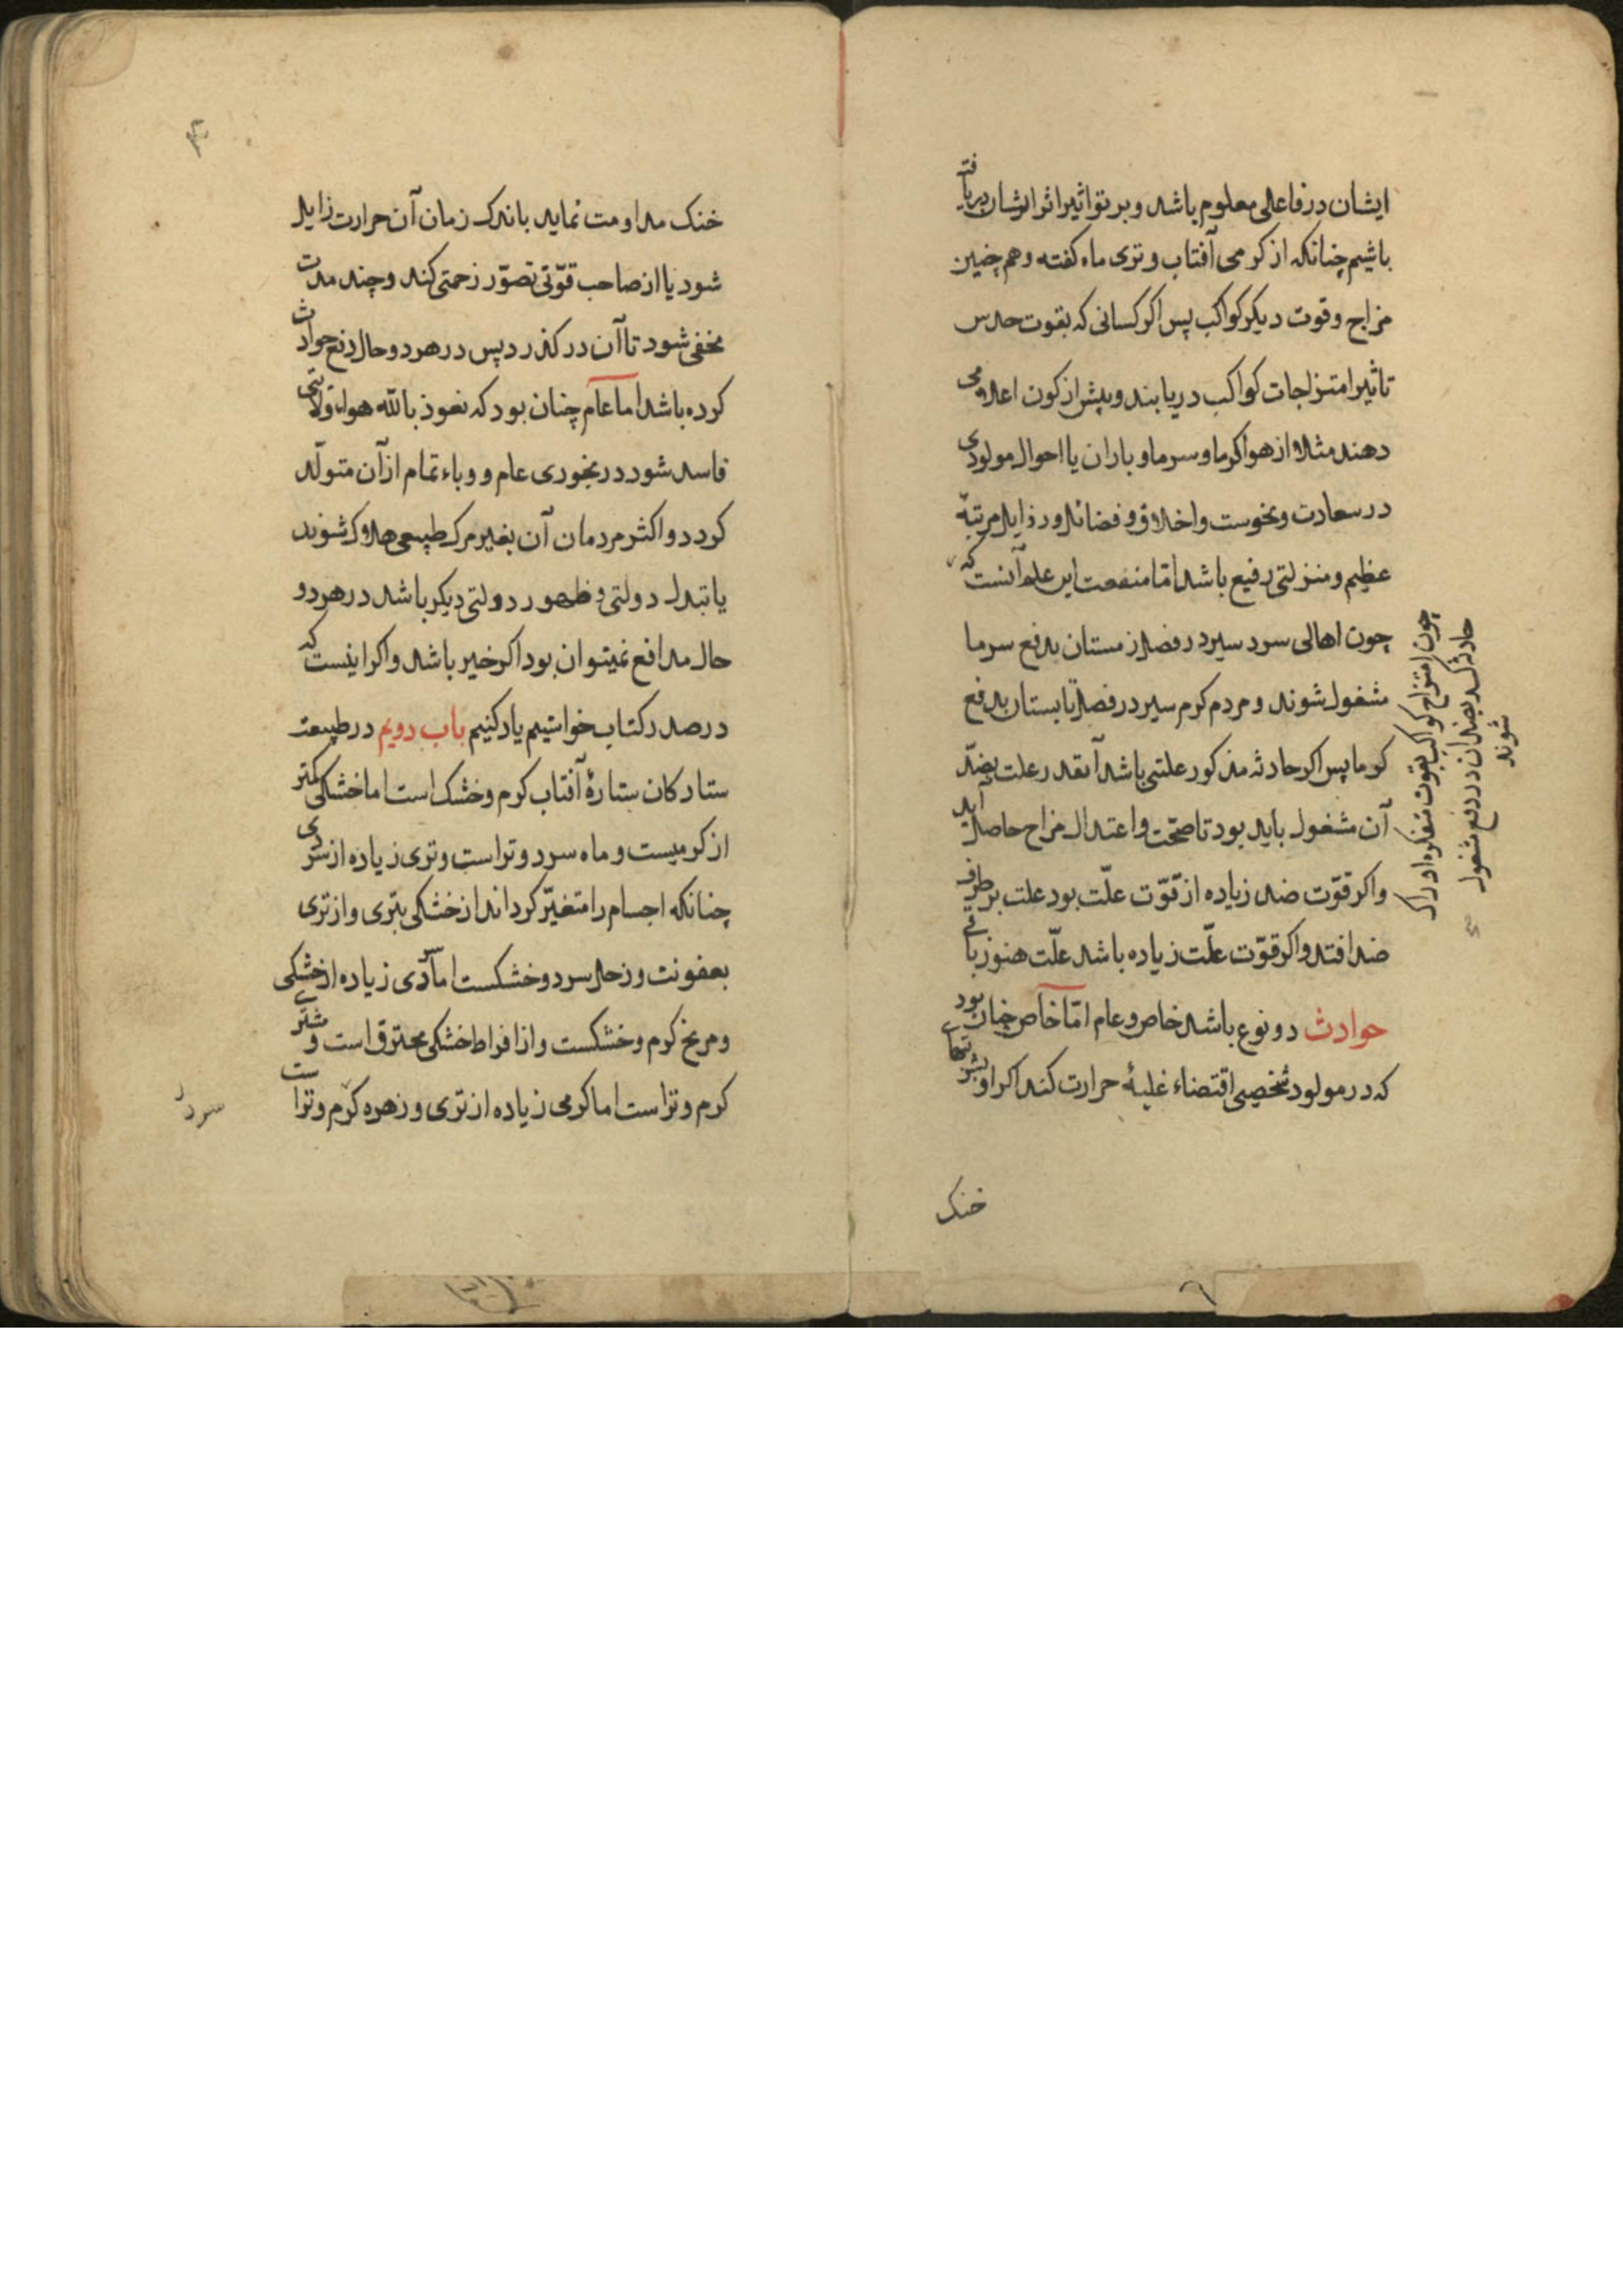 ایشان در فاعلی معلوم باشد و بر تواثیر اثر ایشان دریافته
باشیم چنانکه از کرمی آفتاب و تری ماه کفته و هم چنین
مزاج و قوت دیکر کواکب پس اکر کسانی که بقوت حدس
تاثیر امتزاجات کواکب دریابند و پیش از کون اعلامی
دهند مثلا از هوا کرما و سرما و باران یا احوال مولودی
در سعادت و نحوست و اخلاق و فضائل و رذایل مرتبهٔ
عظیم و منزلتی رفیع باشد امّا منفعت این علم آنست که
چون اهالی سرد سیر در فصل زمستان بدفع سرما
مشغول شوند و مردم کرم سیر در فصل تابستان بدفع
کرما پس اکر حادثه مذکور علتی باشد آنقدر علت بضدّ
آن مشغول باید بود تا صحّت و اعتدال مزاج حاصل آید
و اکر قوّت ضد زیاده از قوّت علّت بود علت بر طرف
ضد افتد و اکر قوّت علّت زیاده باشد علّت هنوز باقی
حوادث دو نوع باشد خاص و عام امّا خاص چنان بود
که در مولود شخصی اقتضاء غلبهٔ حرارت کند اکر او بشربتهای
چون امتزاج کواکب بقوت متفکره ادراک
حادثه کند بضد آن در دفع مشغول
شوند
خنک
۶
۳
خنک مداومت نماید باندک زمان آن حرارت زاید
شود یا از صاحب قوّتی تصوّر زحمتی کند و چند مدت
مخفی شود تا آن در کذرد پس در هر دو حال دفع حوادث
کرده باشد اما عام چنان بود که نعوذ بالله هواء ولایتی
فاسد شود در نجوری عام و وباء تمام از آن متولّد
کردد و اکثر مردمان آن بغیر مرک طبیعی هلاک شوند
یا تبدل دولتی و ظهور دولتی دیکر باشد در هر دو
حال مدافع نمیتوان بود اکر خیر باشد و اکر اینست که
در صدر کتاب خواستیم یاد کنیم باب دویم در طبیعت
ستارکان ستارهٔ آفتاب کرم و خشک است اما خشکی کمتر
از کرمیست و ماه سرد و تر است و تری زیاده از سردی
چنانکه اجسام را متغیّر کرداند از خشکی بتری و از تری
بعفونت و زحل سرد و خشکست اما سردی زیاده از خشکی
و مریخ کرم و خشکست و از افراط خشکی محترق است و مشتری
کرم و تر است اما کرمی زیاده از تری و زهره کرم و تر است
سرد